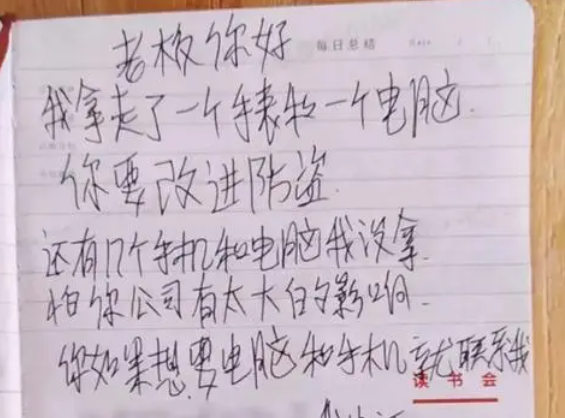 老板你好
每日总结
我拿走了一个手表和一个电脑.
你要改进防盗.
还有几个手机和电脑我没拿.
怕你公司有太大的影响.
你如果想要电脑和手机就联系我
读书会